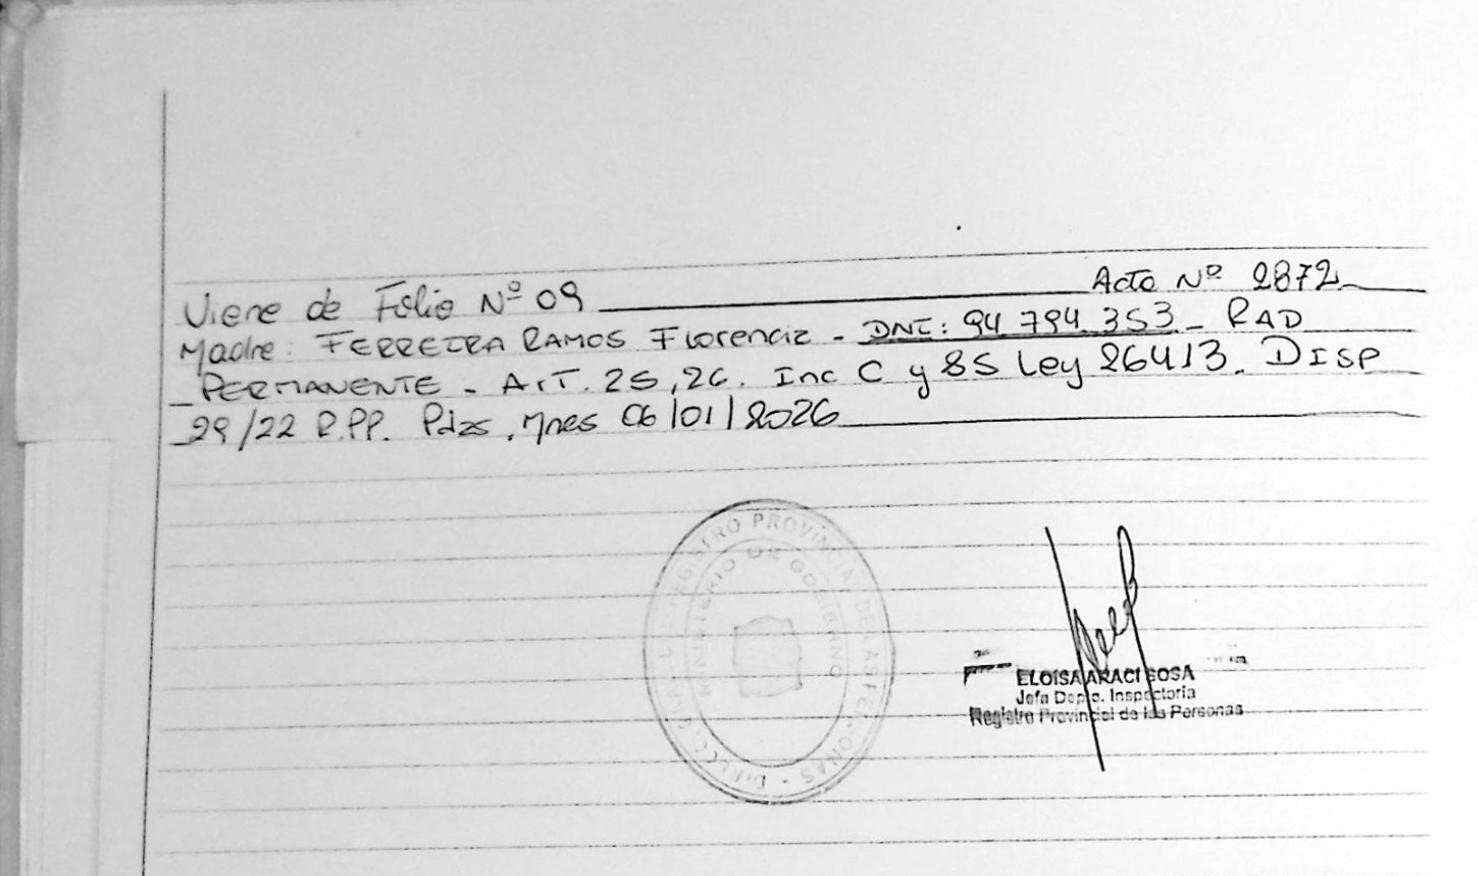 Viene de Folio Nº 09 Acta Nº 2872
Madre: FERREIRA RAMOS Florencia - DNI: 94 794 353 - RAD
PERMANENTE - ArT. 25, 26. Inc C y 85 Ley 26413. DISP
29/22 R.PP. Pdas, Mnes 06/01/2026
DIRECC. GRAL. DEL REGISTRO PROVINCIAL DE LAS PERSONAS
MINISTERIO DE GOBIERNO
ELOISA ARACI SOSA
Jefa Depto. Inspectoria
Registro Provincial de las Personas